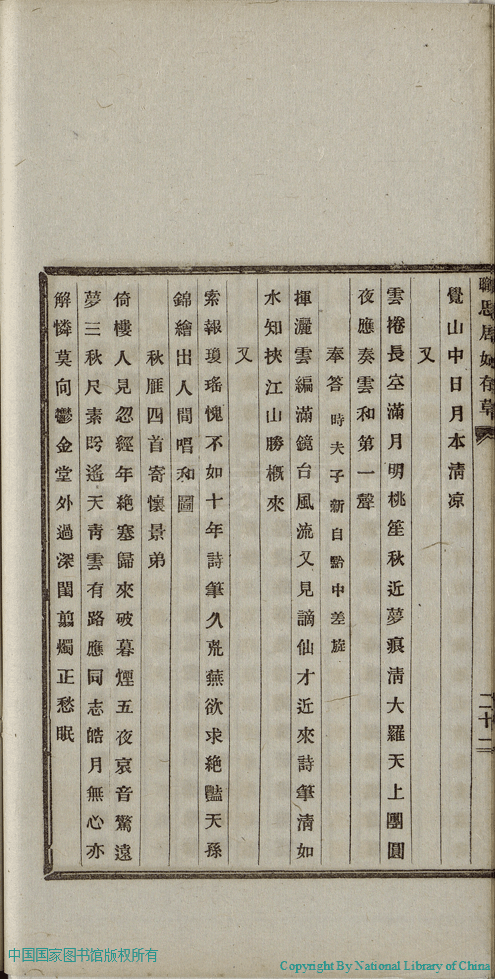 覺山中日月本淸凉
又
雲捲長空滿月明桃笙秋近夢痕淸大羅天上團圓
夜應奏雲和第一聲
奉答時夫子新自黔中差旋
揮灑雲編滿鏡台風流又見謫仙才近來詩筆淸如
水知挾江山勝槪來
又
索報瓊瑤愧不如十年詩筆久荒蕪欲求絶豔天孫
錦繪出人間唱和圖
秋雁四首寄懷景弟
倚樓人見忽經年絶塞歸來破暮煙五夜哀音驚遠
夢三秋尺素盻遙天靑雲有路應同志皓月無心亦
解憐莫向鬱金堂外過深閨翦燭正愁眠
思居
存草
二十二
中国国家图书馆版权所有
Copyright By National Library of China